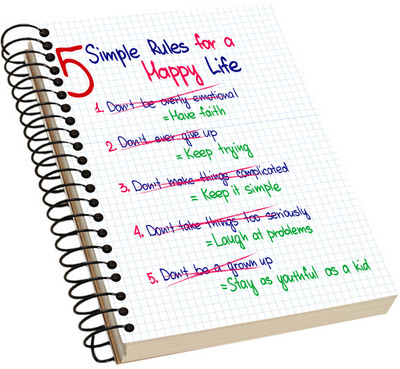 5 Simple Rules for a
Happy Life
1. Don't be overly emotional
=Have faith
2. Don't ever give up
=Keep trying
3. Don't make things complicated
=Keep it simple
4. Don't take things too seriously
=Laugh at problems
5. Don't be a grown up
=Stay as youthful as a kid